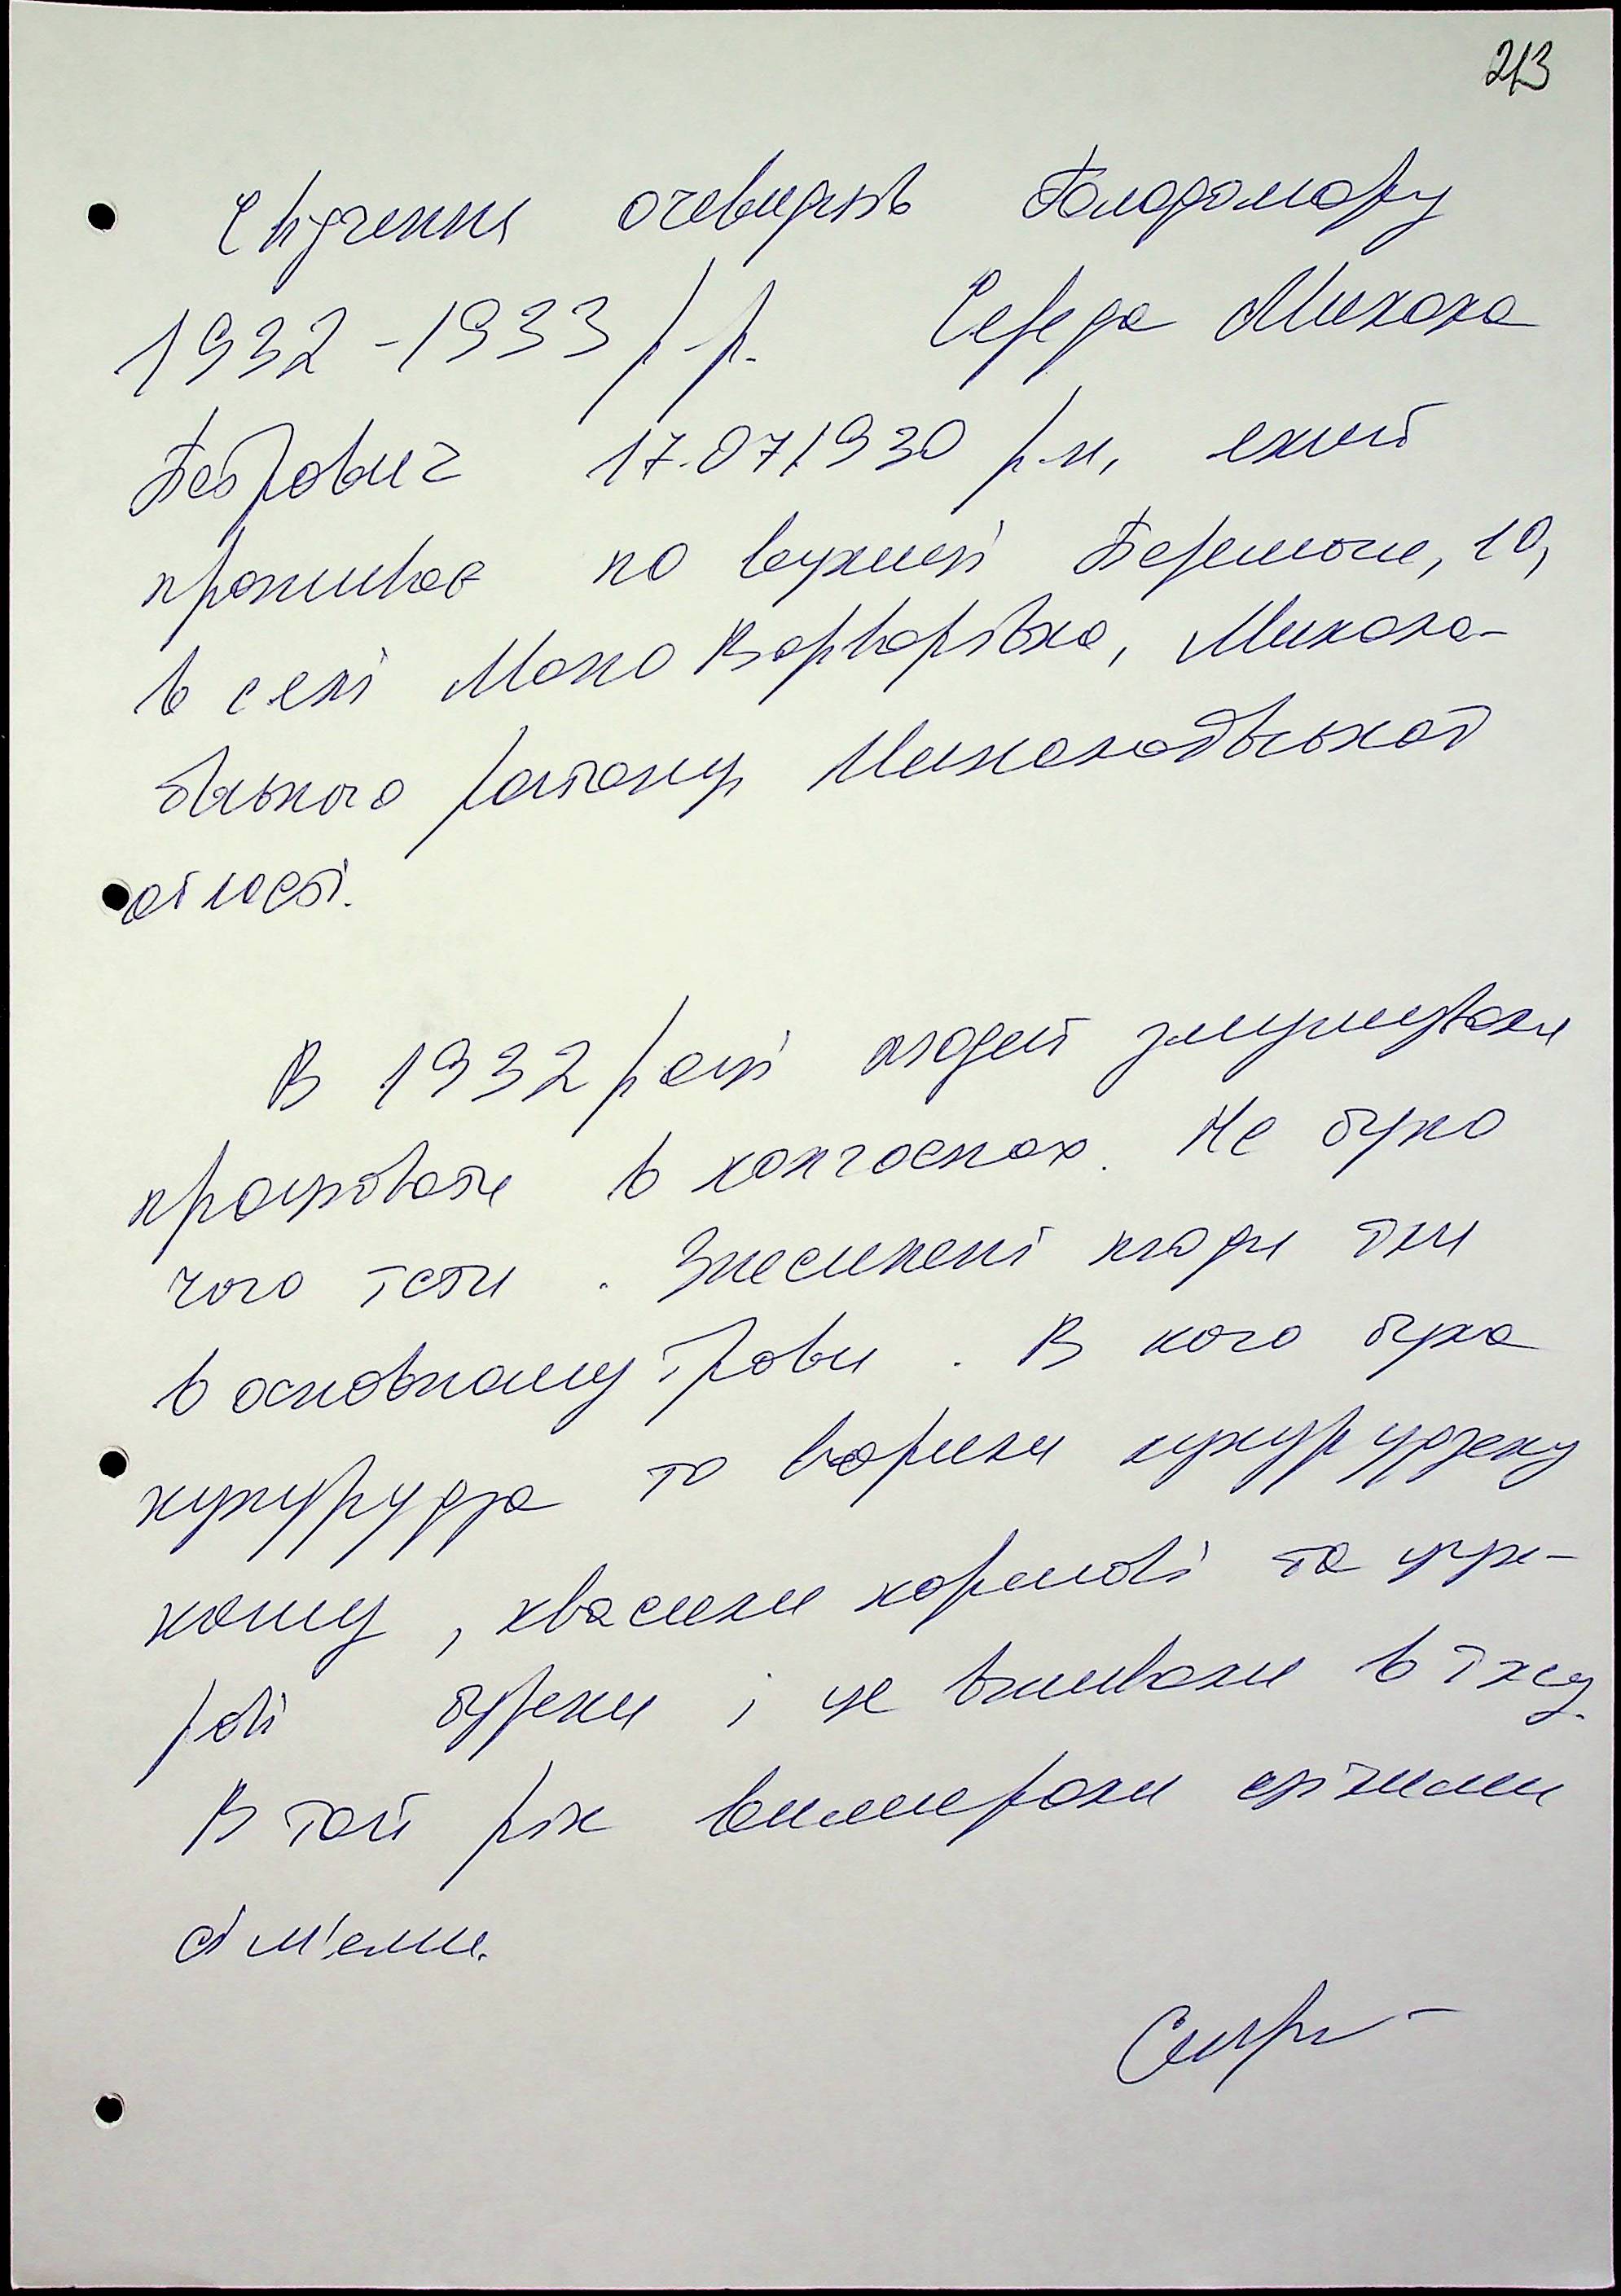 213
Свідчення очевидців Голодомору
1932-1933 р.р. Середа Микола
Петрович 17.07.1930 р.н, який
проживає по вулиці Перемоги, 10,
в селі Мала Варварівка, Микола-
ївського району Миколаївської
області.
В 1932 році людей змушували
працювати в колгоспах. Не було
чого їсти. Знесилені люди їли
в основному трави. В кого була
кукурудза то варили кукурудзяну
кашу, квасили кормові та цук-
рові буряки і це вживали в їжу.
В той рік вимирали цілими
сім'ями.